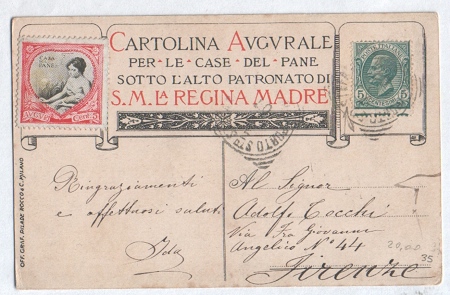 CARTOLINA AVGVRALE
PER · LE · CASE · DEL · PANE
SOTTO L'ALTO PATRONATO DI
S.M. LA REGINA MADRE
CASA
PANE
POSTE ITALIANE
5 5
PORTO
Ringraziamenti
e affettuosi saluti
Ida
Al Signor
Adolfo Cocchi
Via Fra Giovanni
Angelico N° 44
Firenze
20,00
35
OFF. GRAF. PILADE ROCCO & C. MILANO